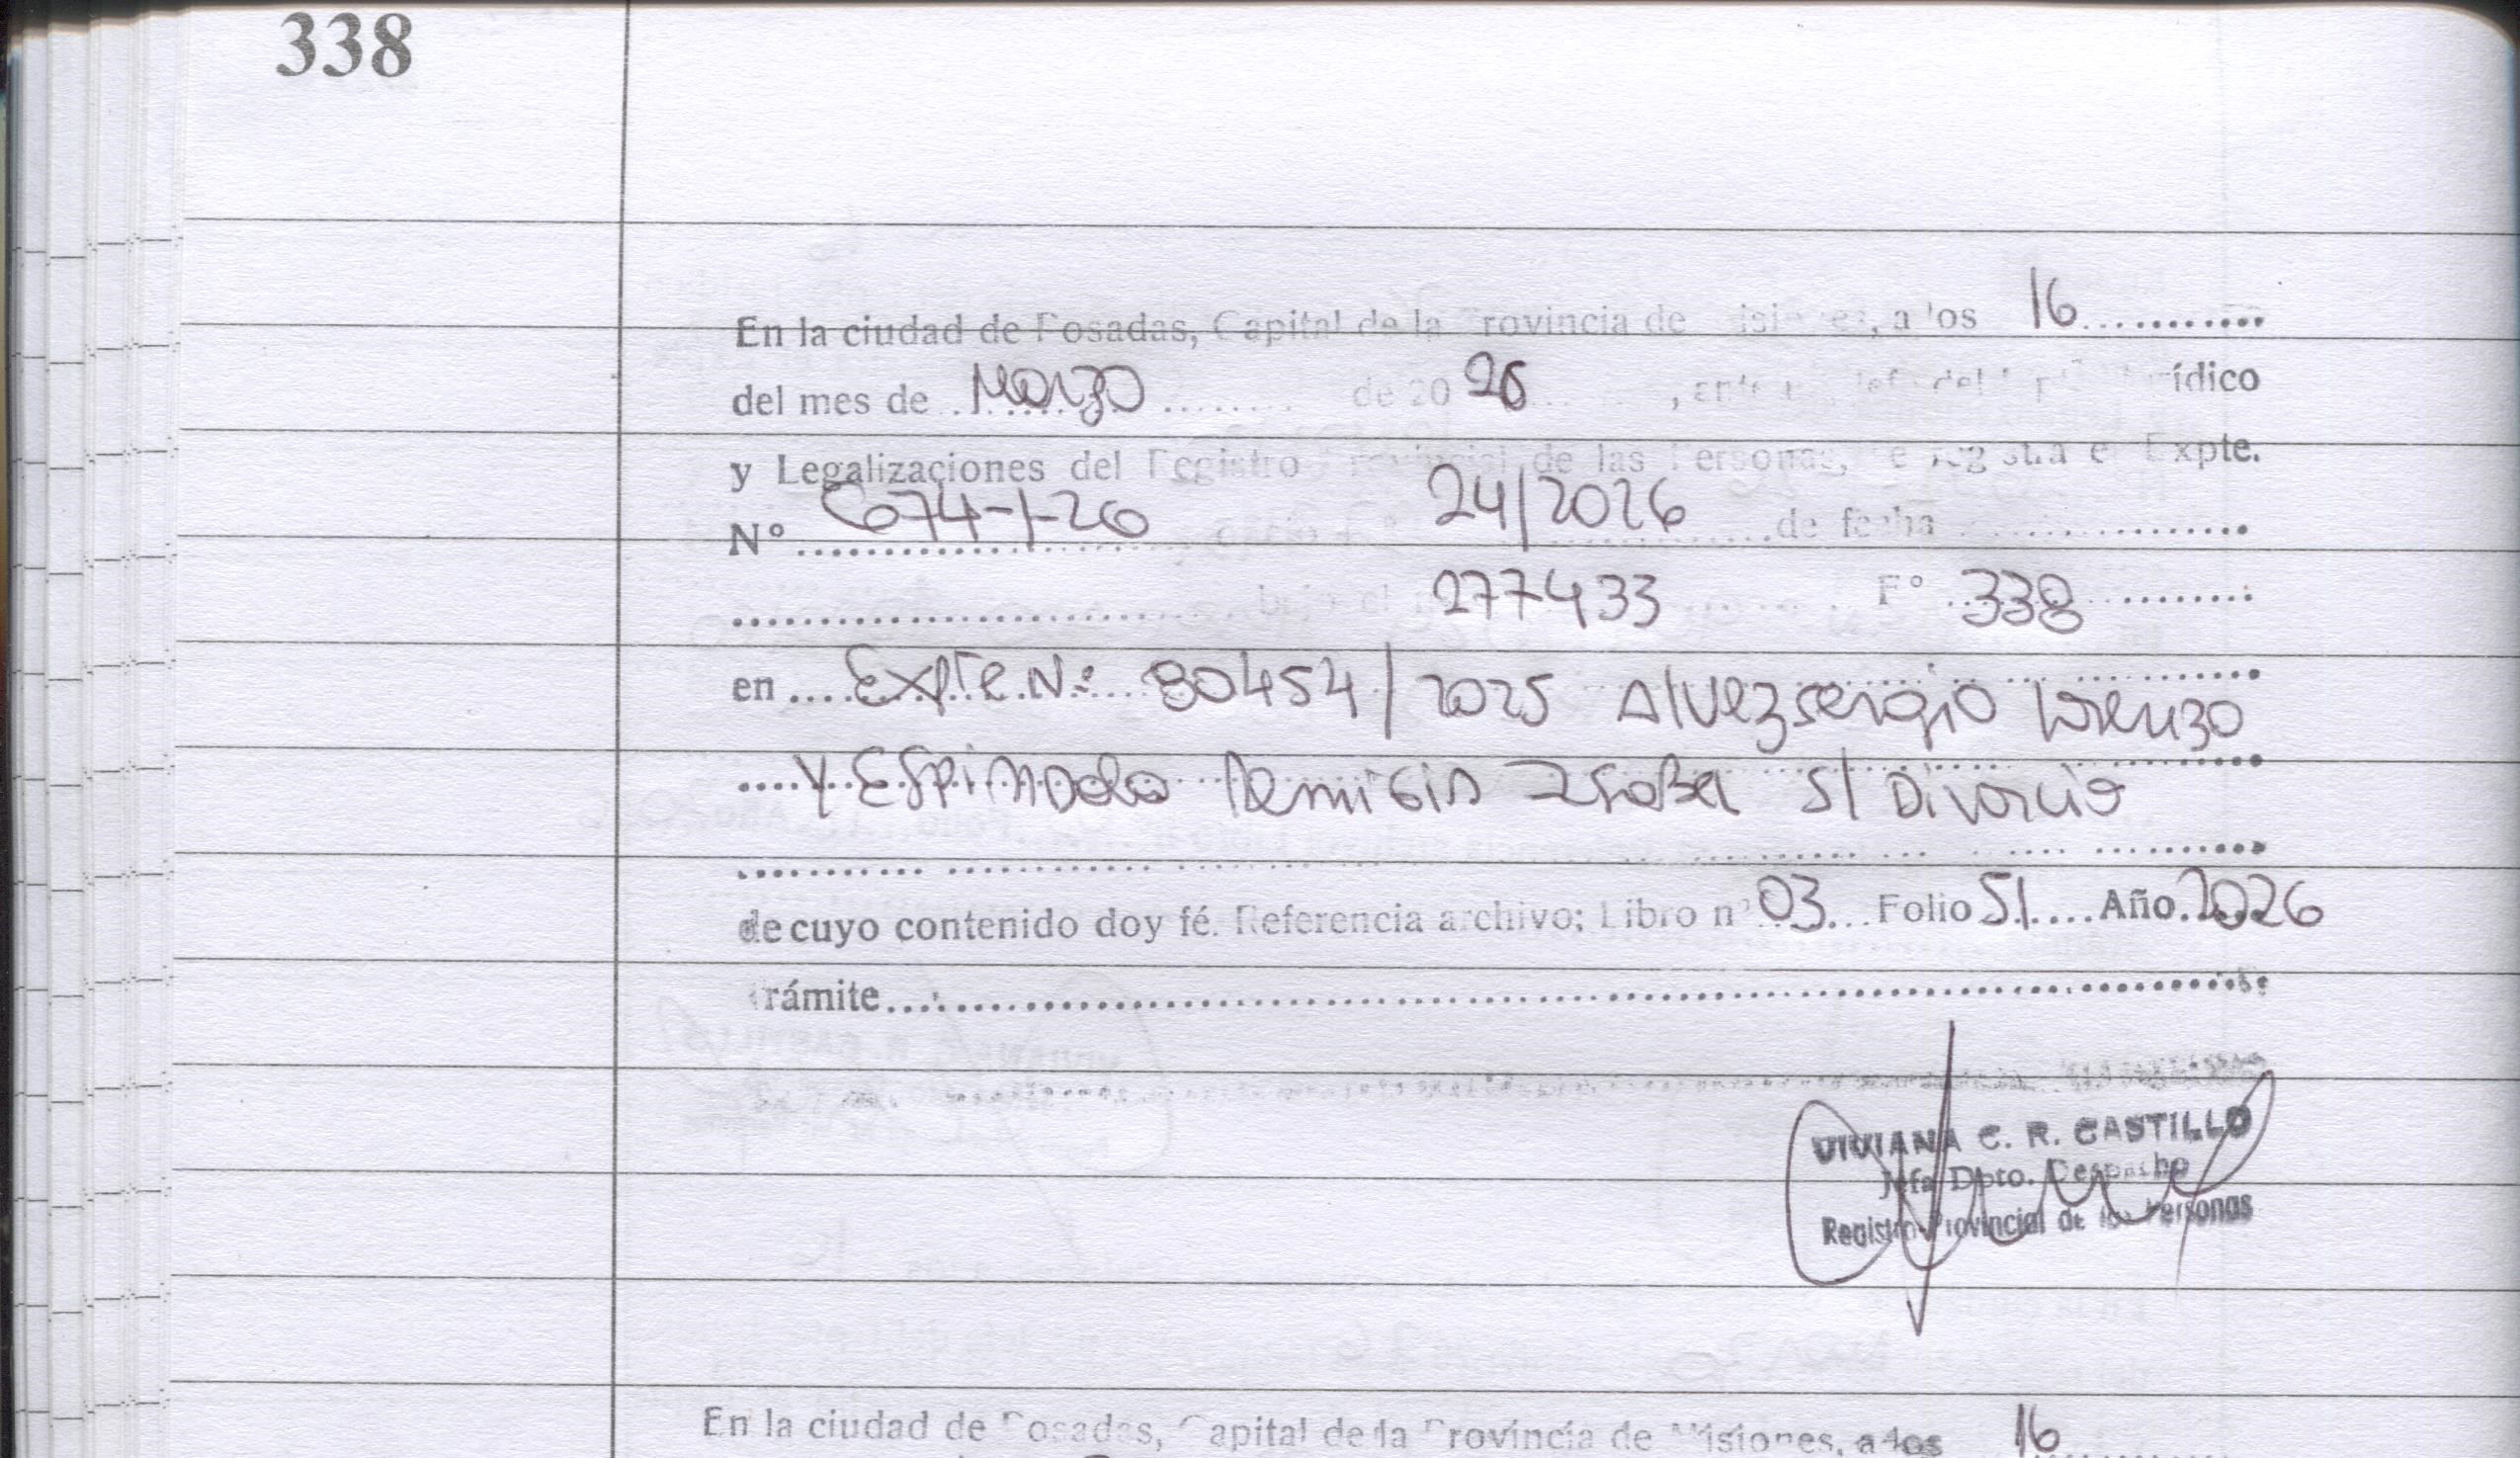 338
En la ciudad de Posadas, Capital de la Provincia de Misiones, a los 16
del mes de Marzo de 20 26, ante el Jefe del Jurídico
y Legalizaciones del Registro Provincial de las Personas, se registra el Expte.
N° 6074-1-26 24/2026 de fecha
bajo el 277433 F° 338
en Expte.N.º 80454/2025 Alvez sergio Lorenzo
Y Espindola Remigia Isabel S/ Divorcio
de cuyo contenido doy fé. Referencia archivo; Libro nº 03 Folio 51 Año 2026
trámite
VIVIANA C. R. CASTILLO
Jefa Dpto. Despacho
Registro Provincial de las Personas
En la ciudad de Posadas, Capital de la Provincia de Misiones, a los 16